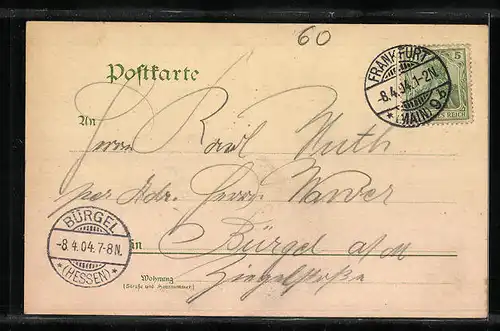 60
Postkarte
FRANKFURT
-8.4.04.1-2N.
*(MAIN)9*
5
An
Herrn Karl Muth
per Adr. Herrn
BÜRGEL
-8.4.04.7-8N.
*(HESSEN)*
in Bürgel a/M
Wohnung
Ziegelstraße
(Straße und Hausnummer)